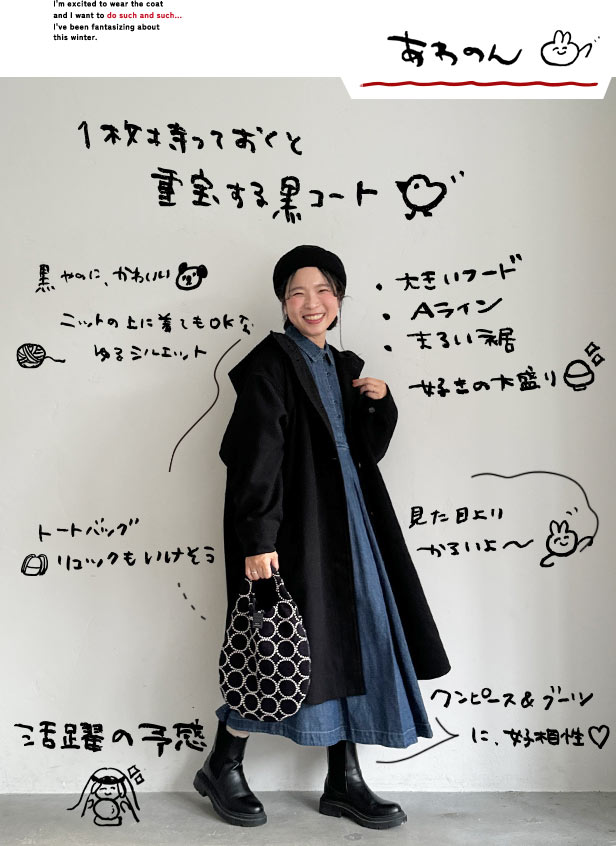 I'm excited to wear the coat
and I want to do such and such...
I've been fantasizing about
this winter.
あわのん
1枚持っておくと
重宝する黒コート
黒やのに、かわいい
ニットの上に着てもOKな
ゆるシルエット
・大きいフード
・Aライン
・まるい裾
好きの大盛り
トートバッグ
リュックもいけそう
見た目より
かるいよ〜
ワンピース&ブーツ
に、好相性♡
活躍の予感